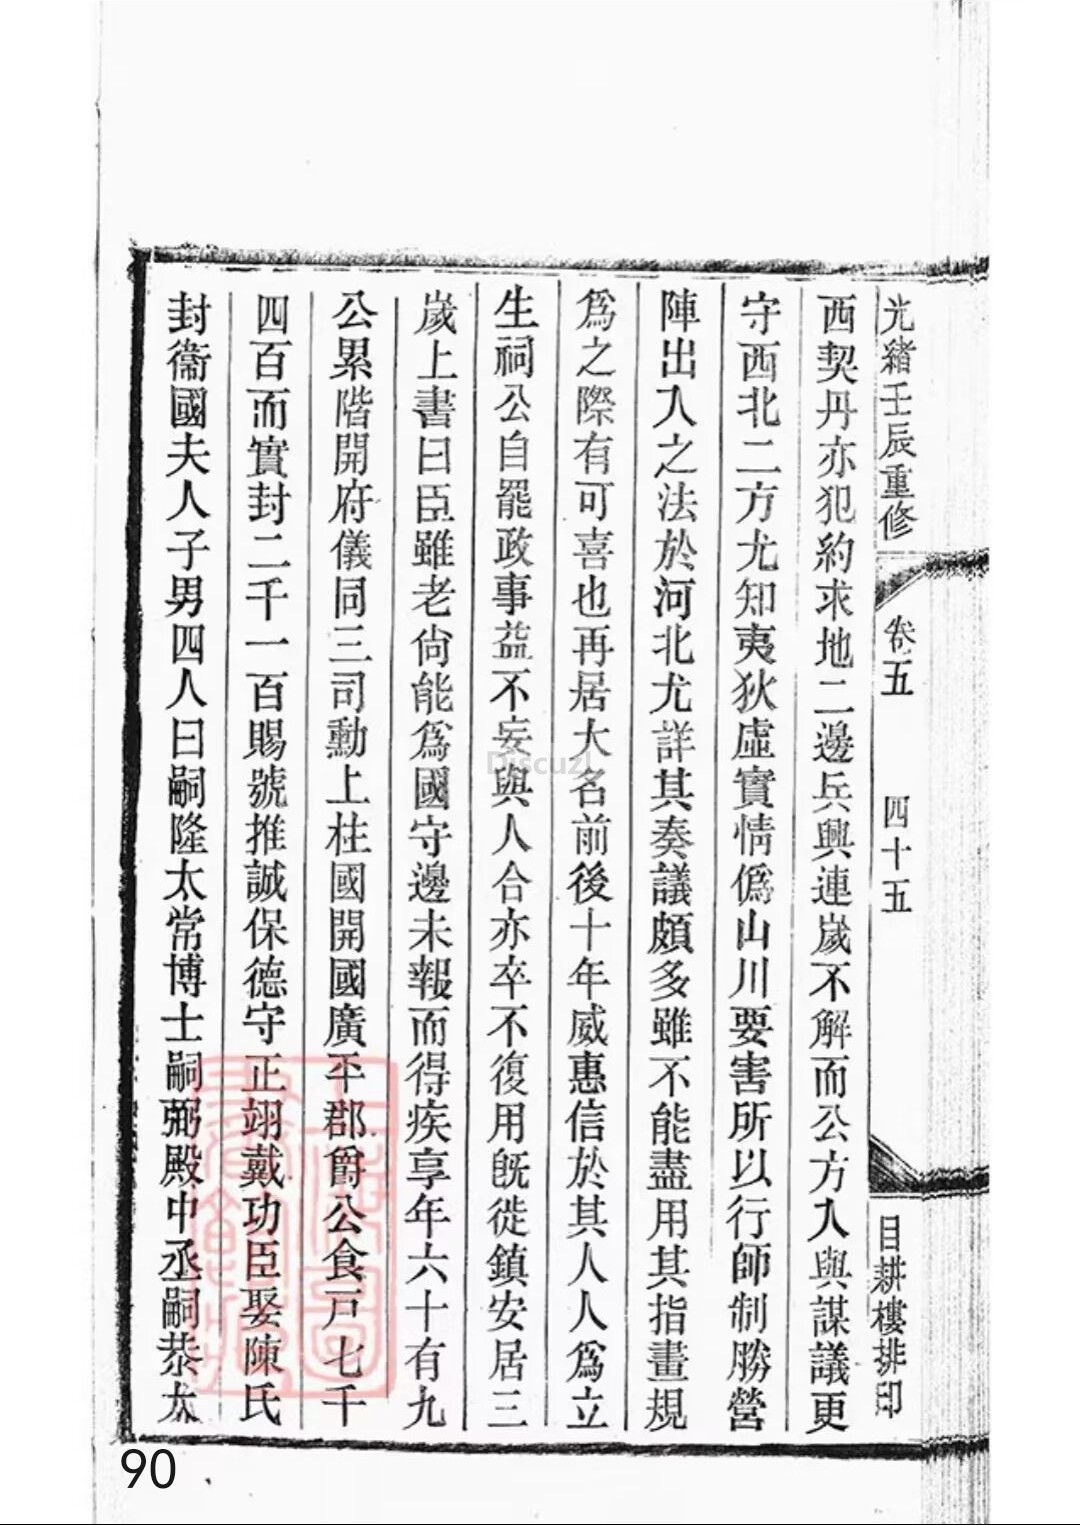 光緒壬辰重修
卷五
四十五
目耕樓排印
西契丹亦犯約求地二邊兵興連歲不解而公方入與謀議更
守西北二方尤知夷狄虛實情僞山川要害所以行師制勝營
陣出入之法於河北尤詳其奏議頗多雖不能盡用其指畫規
爲之際有可喜也再居大名前後十年威惠信於其人人爲立
生祠公自罷政事益不妄與人合亦卒不復用旣徙鎮安居三
歲上書曰臣雖老尙能爲國守邊未報而得疾享年六十有九
公累階開府儀同三司勳上柱國開國廣平郡爵公食戸七千
四百而實封二千一百賜號推誠保德守正翊戴功臣娶陳氏
封衞國夫人子男四人曰嗣隆太常博士嗣弼殿中丞嗣恭太
上海圖
書館藏
Discuz!
90